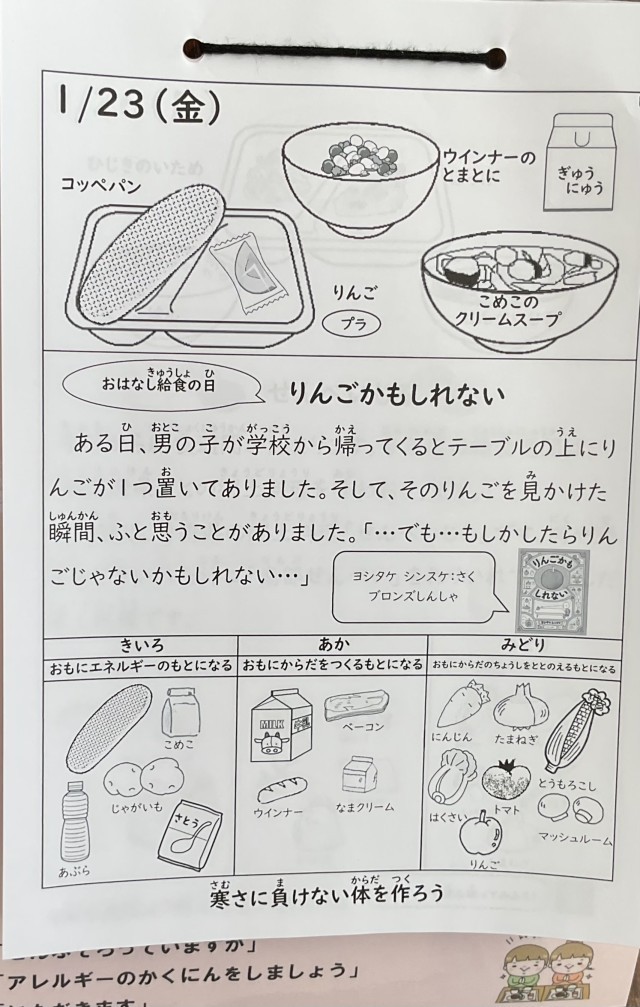 1/23(金)
コッペパン
ウインナーの
とまとに
ぎゅう
にゅう
りんご
プラ
こめこの
クリームスープ
おはなし給食の日
きゅうしょ ひ
りんごかもしれない
ひ おとこ こ がっこう かえ うえ
ある日、男の子が学校から帰ってくるとテーブルの上にり
お み
んごが1つ置いてありました。そして、そのりんごを見かけた
しゅんかん おも
瞬間、ふと思うことがありました。「…でも…もしかしたらりん
ごじゃないかもしれない…」
ヨシタケ シンスケ:さく
ブロンズしんしゃ
りんごかも
しれない
きいろ
おもにエネルギーのもとになる
こめこ
じゃがいも
さとう
あぶら
あか
おもにからだをつくるもとになる
MILK
ベーコン
ウインナー
なまクリーム
みどり
おもにからだのちょうしをととのえるもとになる
にんじん
たまねぎ
とうもろこし
はくさい
トマト
マッシュルーム
りんご
さむ ま からだ つく
寒さに負けない体を作ろう
「アレルギーのかくにんをしましょう」